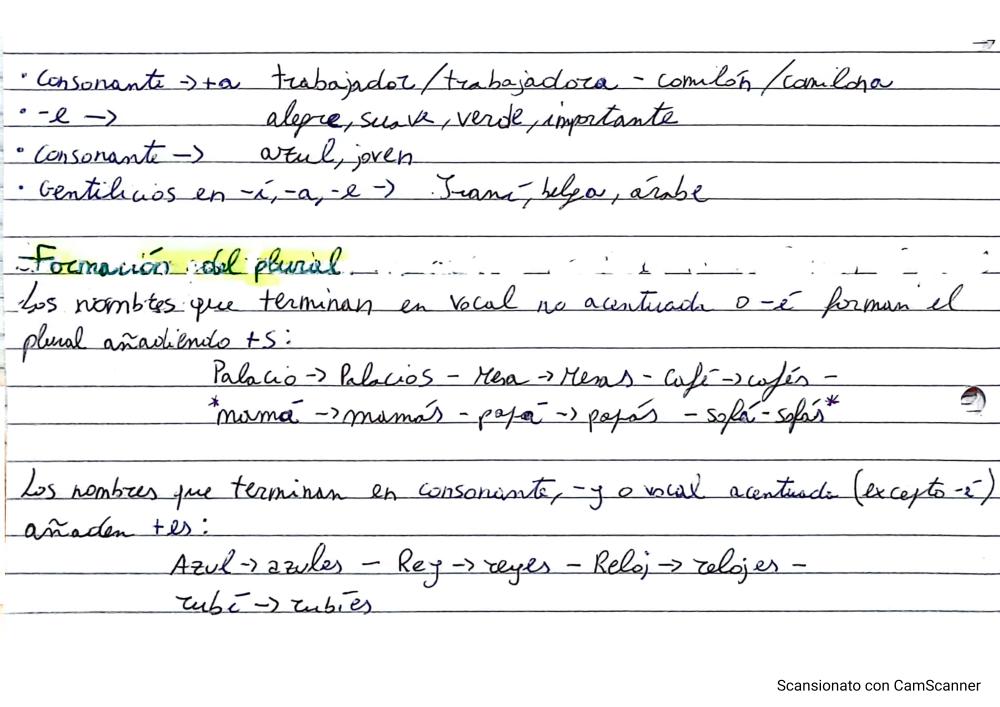 →
• Consonante → +a trabajador/trabajadora - comilón/comilona
• -e → alegre, suave, verde, importante
• Consonante → azul, joven
• Gentilicios en -í, -a, -e → Iraní, belga, árabe
Formación del plural
Los nombres que terminan en vocal no acentuada o -é forman el
plural añadiendo +s:
Palacio → Palacios - Mesa → Mesas - Café → cafés -
*mamá → mamás - papá → papás - sofá - sofás*
Los nombres que terminan en consonante, -y o vocal acentuada (excepto -é)
añaden +es:
Azul → azules - Rey → reyes - Reloj → relojes -
rubí → rubíes
Scansionato con CamScanner